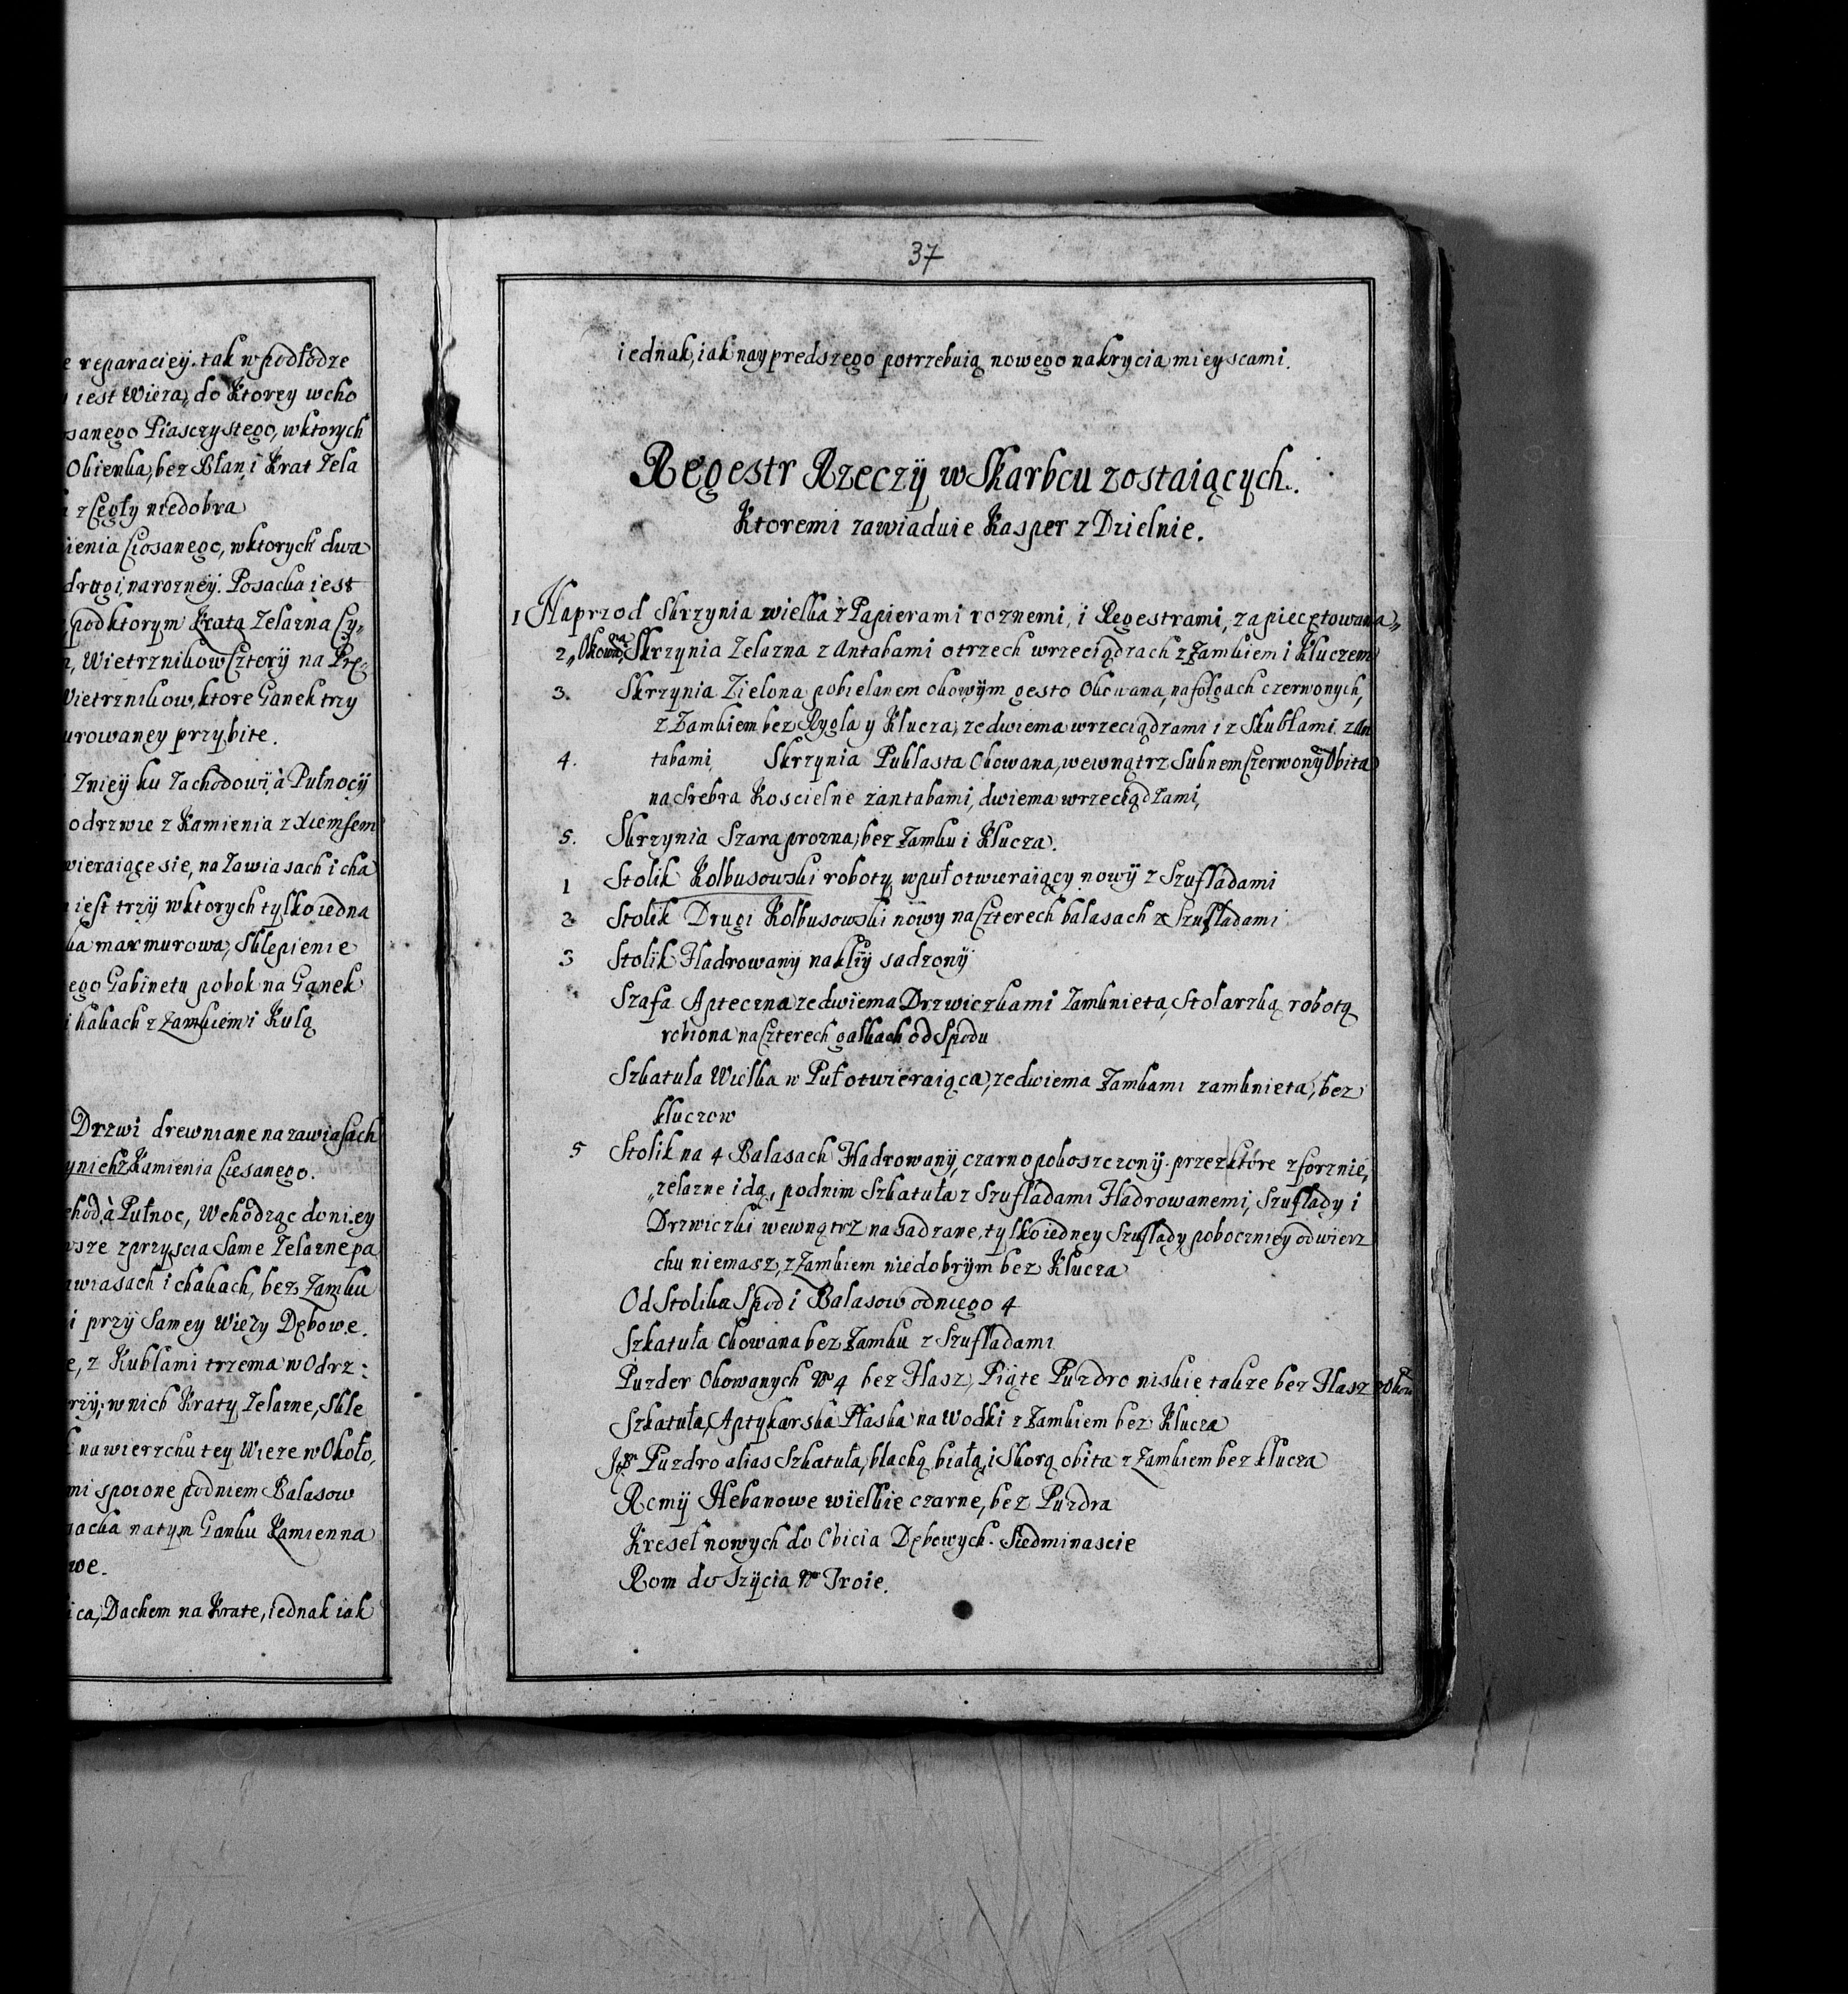 e reparaciey. tak w podłodze
iest Wieza, do Ktorey wcho
sanego Piasczystego, w ktorych
Okienka, bez Błan i Krat Zela
z Cegły niedobra
ienia Ciosanego, w ktorych dwa
drugi, narozney. Posacka iest
pod ktorym Krata Zelazna Cy,,
Wietrznikow Czterÿ na Prę,,
Wietrznikow, ktore Ganek trzy
urowaney przybite.
Zniey ku Zachodowi, à Pułnocÿ
odrzwie z Kamienia z xiemsem
wieraiące sie, na Zawiasach i cha
iest trzÿ w ktorych tylko iedna
ka marmurowa, Sklepienie
ego Gabinetu pobok na Ganek
i hakach z Zamkiem i Kulą
Drzwi drewniane na zawiasach
ynich z Kamienia Ciesanego.
chod à Pułnoc, Wchodząc do niey
wsze z przyscia Same Zelazne pa
awiasach i chakach, bez Zamku
i przÿ Samey Wieży Dębowe.
e, z Kublami trzema w Odrz:
rzÿ, w nich Kraty Zelazne, Skle
na wierzchu tey Wieze w Około,
mi spoione podniem Balasow
acka na tym Ganku Kamienna
we.
ica, Dachem na Krate, iednak iak
37
iednak, iak naypredszego potrzebuią nowego nakrycia mieyscami.
Regestr Rzeczÿ w Skarbcu zostaiących.
Ktoremi zawiaduie Kasper z Dzielnie.
1 Naprzod Skrzynia wielka z Papierami roznemi, i Regestrami, zapieczętowana,,
2,, Okowana, Skrzynia Zelazna z Antabami o trzech wrzeciądzach z Zamkiem i Kluczem
3. Skrzynia Zielona pobielanem okowÿm gesto Okowana, na folgach czerwonych,
z Zamkiem bez Rygla y Klucza, ze dwiema wrzeciądzami i z Skubłami z An
4. tabami, Skrzynia Puklasta Okowana, wewnątrz Suknem Czerwonÿ Obita
na Srebra Koscielne z antabami, dwiema wrzeciądzami,
5. Skrzynia Szara prozna, bez Zamku i Klucza.
1 Stolik Kolbusowski roboty w puł otwieraiący nowÿ z Szufladami
2 Stolik Drugi Kolbusowski nowy na Czterech balasach z Szufladami
3 Stolik Fladrowany na klÿ sadzonÿ
Szafa Apteczna ze dwiema Drzwiczkami Zamknieta, Stolarzką robotą
robiona na Czterech gałkach od Spodu
Szkatuła Wielka w Puł otwieraiąca, ze dwiema Zamkami zamknieta, bez
kluczow
5 Stolik na 4 Balasach Fladrowanÿ, czarno pokoszczonÿ, przez które sforznie,
,,zelazne idą, podnim Szkatuła z Szufladami Fladrowanemi, Szuflady i
Drzwiczki wewnątrz nasadzane, tylko iedney Szuflady poboczney od wierz
chu niemasz, z Zamkiem niedobrÿm bez Klucza
Od Stolika Spod i Balasow od niego 4
Szkatuła Okowana bez Zamku z Szufladami
Puzder Okowanych No 4 bez Flasz, Piąte Puzdro niskie takze bez Flasz
Szkatuła, Aptykarska Płaska na Wodki z Zamkiem bez Klucza
Puzdro alias Szkatuła, blachą białą, i Skorą obita z Zamkiem bez klucza
Ramÿ Hebanowe wielkie czarne, bez Puzdra
Kreseł nowych do Obicia Dębowych. Siedminascie
Rom do Szÿcia No Troie.